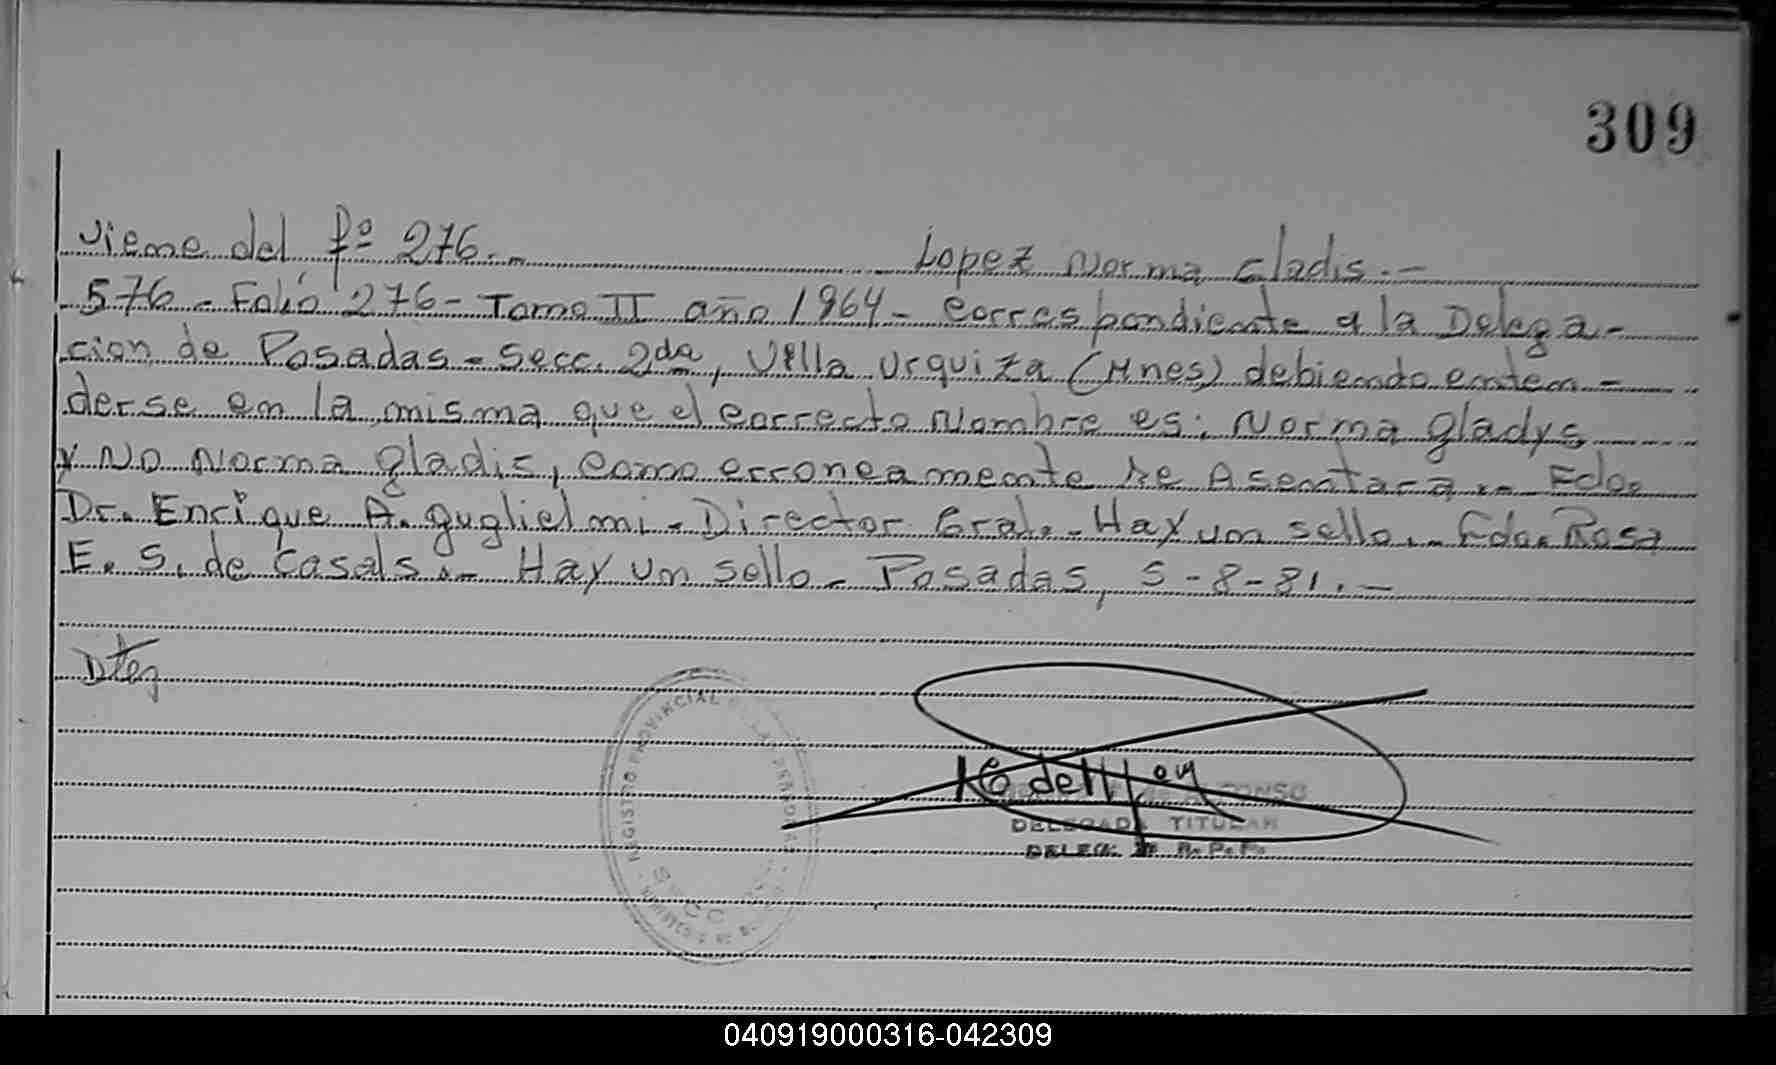 309
Viene del fº 276.- Lopez Norma Gladis.-
576 - Folio 276 - Tomo II año 1964 - correspondiente a la Delega-
cion de Posadas - Secc. 2da, Villa Urquiza (Mnes) debiendo enten-
derse en la misma que el correcto Nombre es: Norma Gladys
y No Norma Gladis, como erroneamente se Asentara.- Fdo.
Dr. Enrique A. Guglielmi - Director Gral. - Hay un sello.- Fdo. Rosa
E. S. de Casals.- Hay un sello - Posadas, 5-8-81.-
REGISTRO PROVINCIAL DE LAS PERSONAS
DELEGADA TITULAR
DELEG. R.P.P.
040919000316-042309